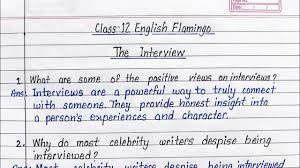 Class-12 English Flamingo
The Interview
1. What are some of the positive views on interviews?
Ans: Interviews are a powerful way to truly connect
with someone. They provide honest insight into
a person's experiences and character.
2. Why do most celebrity writers despise being
interviewed?
Ans: Most celebrity writers despise being interviewed